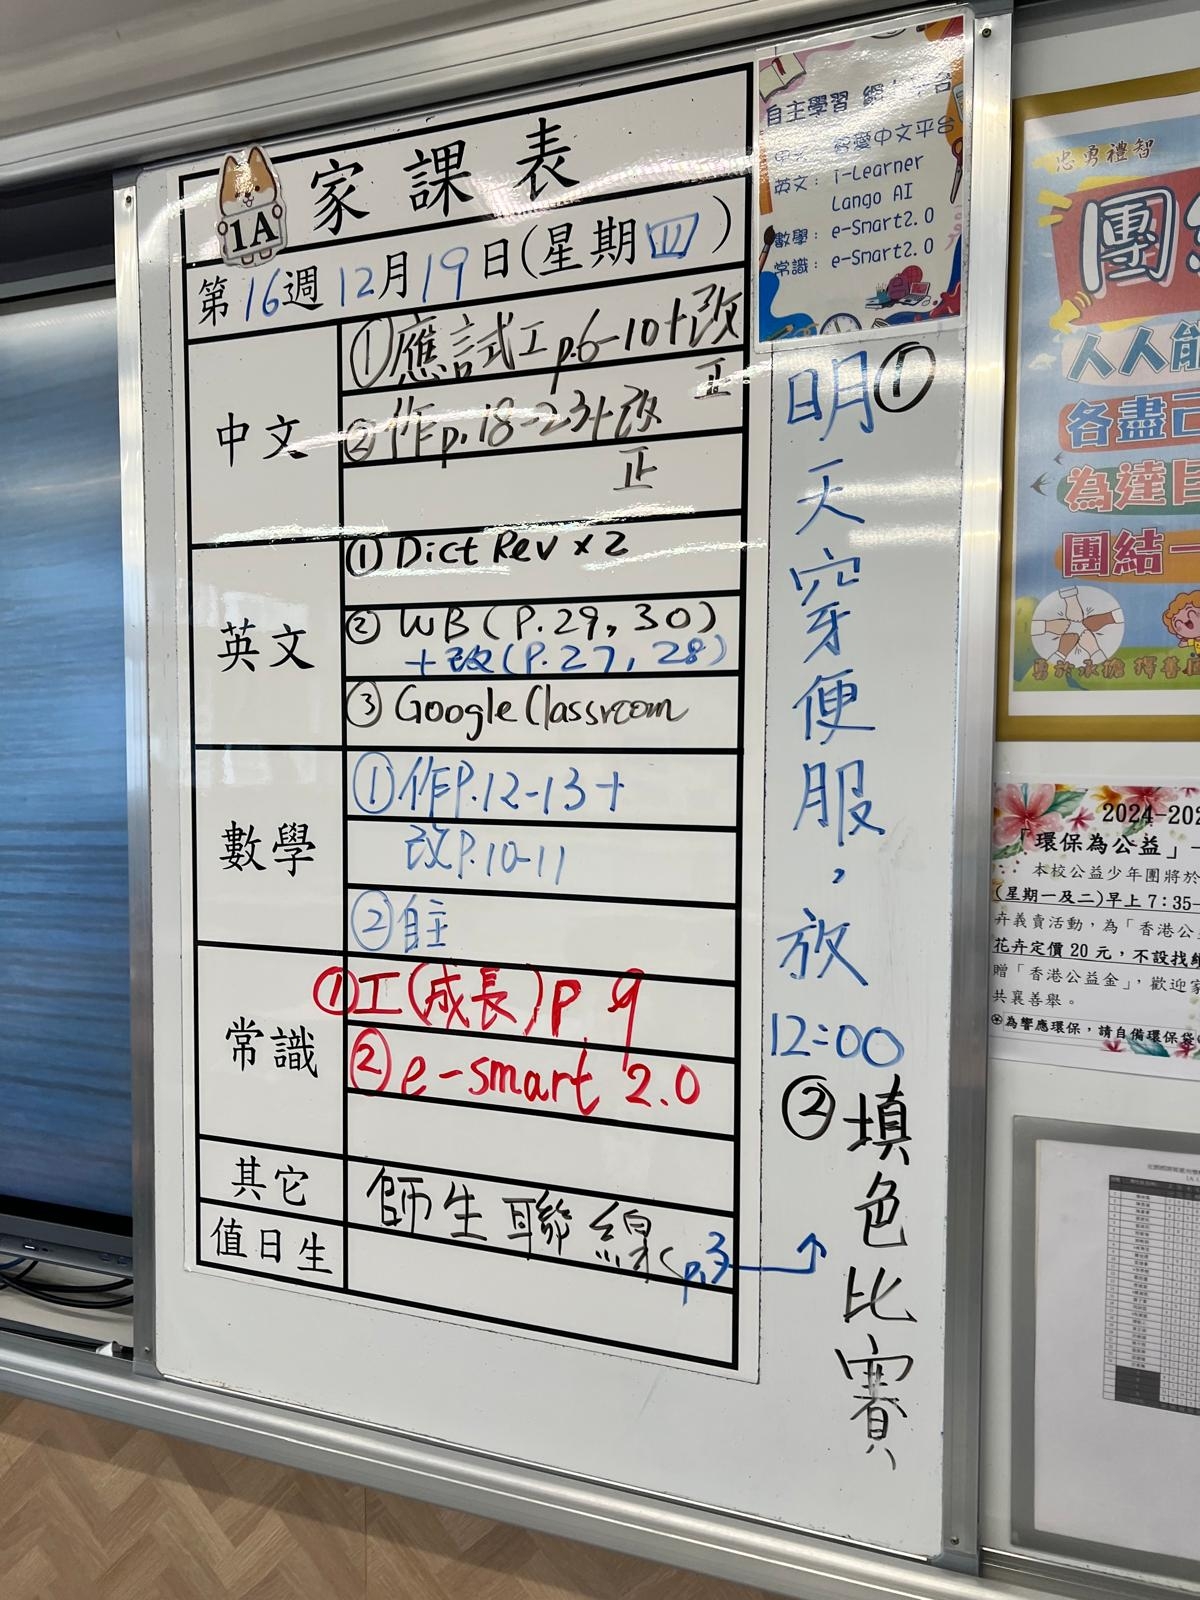 家課表
1A
第16週12月19日(星期四)
中文
①應試工p.6-10+改
正
②作p.18-23+改
正
英文
① Dict Rev x 2
② WB (P.29, 30)
+改(P.27, 28)
③ Google Classroom
數學
①作P.12-13+
改P.10-11
②自主
常識
①工(成長)p.9
②e-smart 2.0
其它
師生聯線
p.3
值日生
自主學習
英文: i-Learner
Lango AI
數學: e-Smart2.0
常識: e-Smart2.0
①
明天穿便服，放
12:00
②填色比賽
忠勇禮智
團
人人能
各盡己
為達目
團結一
2024-202
「環保為公益」
本校公益少年團將於
(星期一及二)早上7:35-
卉義賣活動，為「香港公
花卉定價 20 元，不設找
贈「香港公益金」，歡迎家
共襄善舉。
為響應環保，請自備環保袋